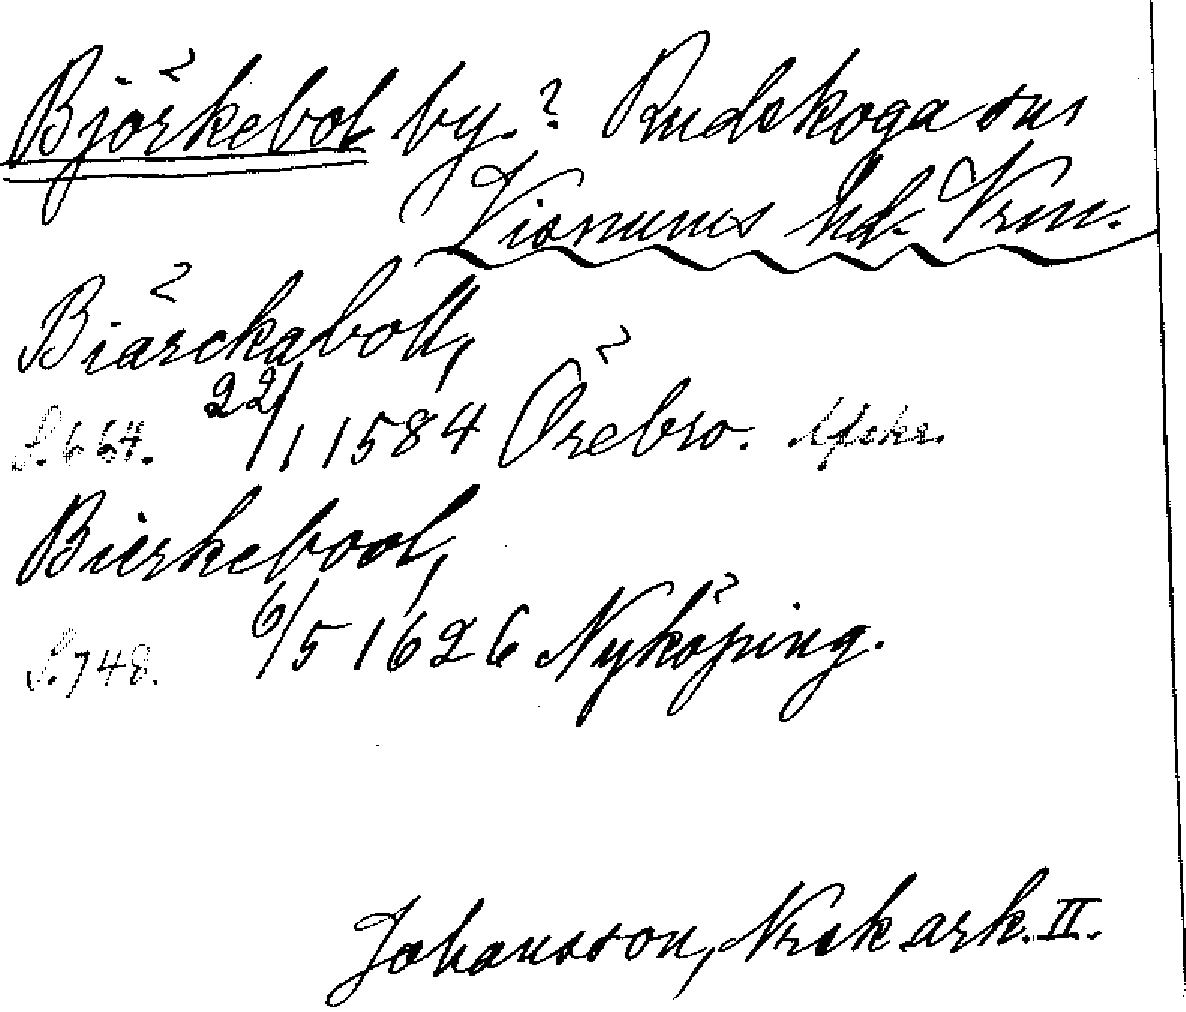 Björkebol by.? Rudskoga sns
Visnums hd. Vrm.
Biärckaboll,
S. 664. 22/1 1584 Örebro.
Bierkebool,
S. 748. 6/5 1626 Nyköping.
Johansson, Nrsk ark. II.